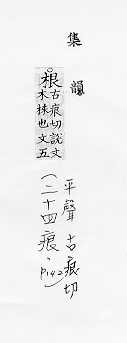 集韻
○根
古痕切說文
木株也文五
平聲 古痕切
(二十四痕·P142)